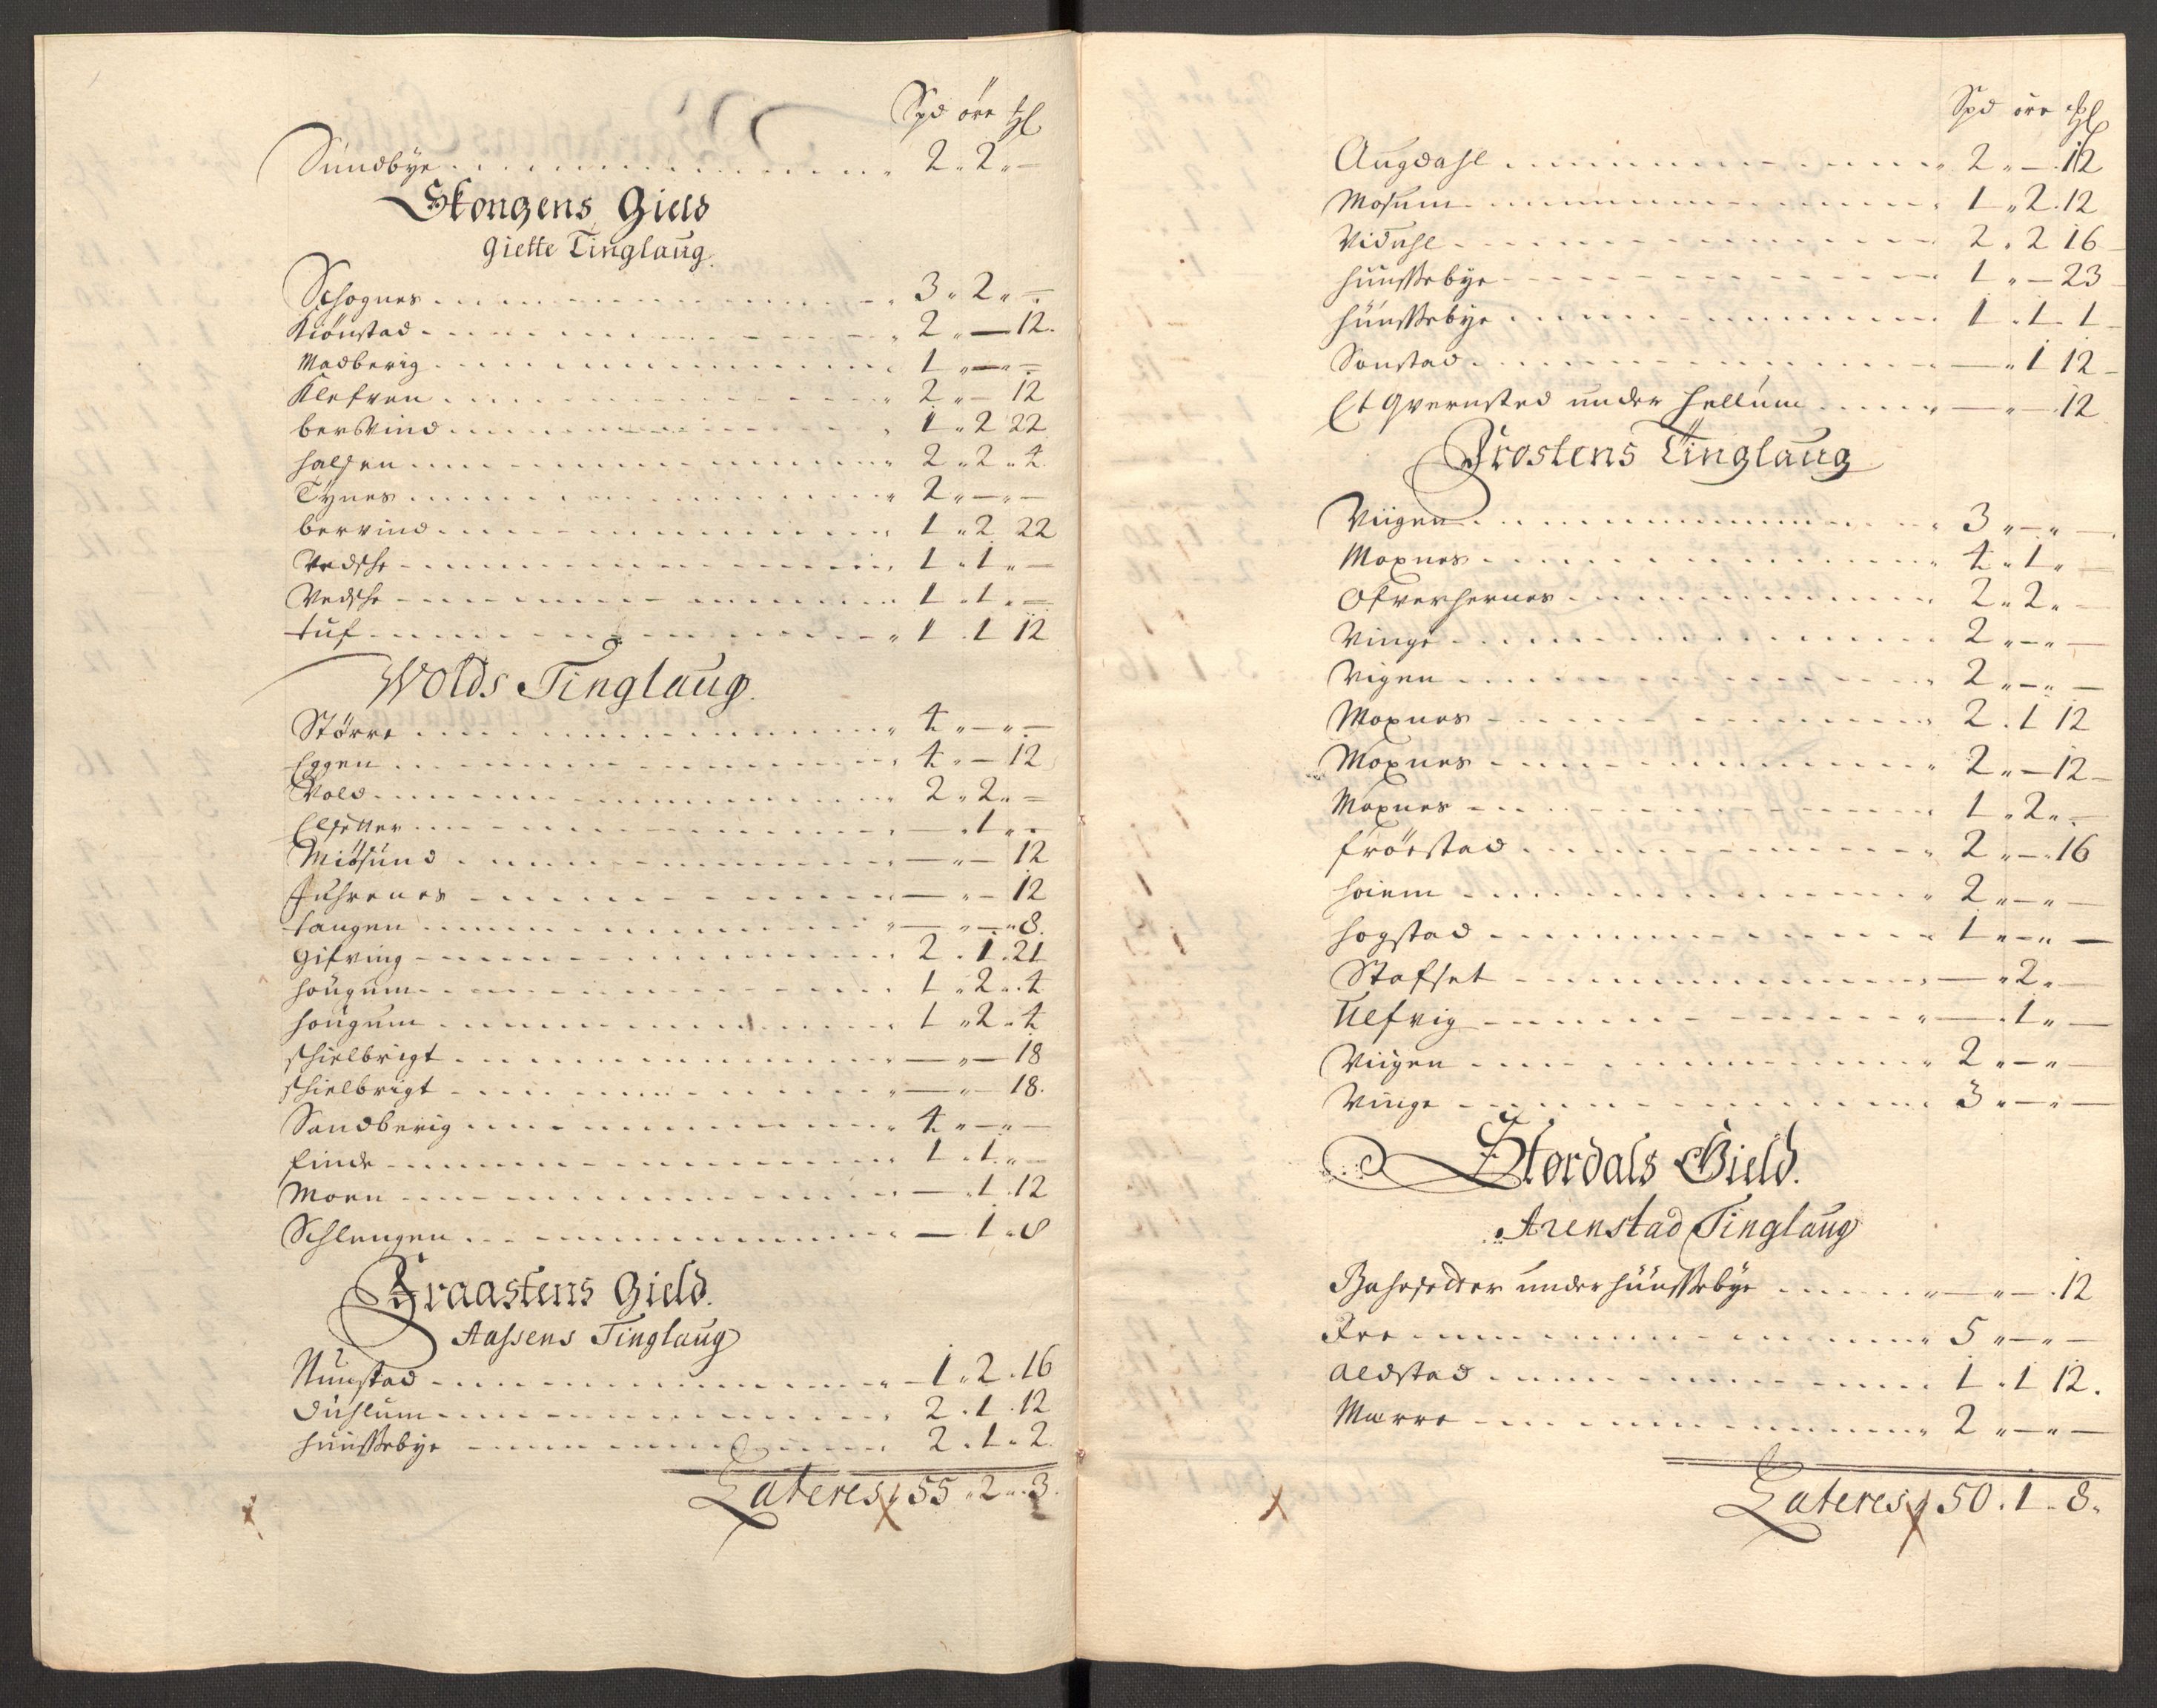 Spd öre ₰
Sundbye 2 " 2 " —
Skongens Gield
Giette Tinglaug
Schognes 3 " 2 " —
Kiönstad 2 " — 12.
Madberig 1 " — " —
Klefven 2 " — 12
berVind 1 " 2 22
halsen 2 " 2 " 4
Tynes 2 " — " —
bervind 1 " 2 22
Vedsche 1 " 1 " —
Vedsche 1 " 1 " —
tuf 1 . 1 12
Wolds Tinglaug.
Större 4 " — " —
Eggen 4 " — 12
Vold 2 " 2 " —
Elsetter — " 1 " —
Miösund — " — 12
Fuhrenes — " — 12
tangen — " — " 8.
Gifving 2 . 1 . 21
hougum 1 " 2 " 4
hougum 1 " 2 " 4
schielbrigt — " — 18
schielbrigt — " — 18.
Sandberig 4 " — " —
Einde 1 " 1 " —
Moen — " 1 . 12
Schlengen — 1 " 8
Fraastens Gield.
Aassens Tinglaug
Nunstad 1 " 2 . 16
Duhlum 2 . 1 . 12
huusbye 2 . 1 . 2
Lateres 55 " 2 " 3.
Spd öre ₰
Augdahl 2 " — . 12
Mosum 1 " 2 . 12
Viduhl 2 . 2 16
huusbye 1 " — 23
huusbye 1 . 1 . 1
Sonstad — " 1 12
Et Qvernsted under hellum — " — 12
Frostens Tinglaug
Viigen 3 " — " —
Moxnes 4 " 1 " —
Ofverhernes 2 " 2 " —
Vinge 2 " — " —
Vigen 2 " — " —
Moxnes 2 . 1 12
Moxnes 2 " — 12
Moxnes 1 " 2 " —
fröestad 2 " — 16
hoiem 2 " — " —
hogstad 1 " — " —
Stafset — " 2 " —
Ulfvig — " 1 " —
Viigen 2 " — " —
Vinge 3 " — " —
Stördals Gield.
Arenstad Tinglaug
under huusbye " — " — . 12
Free 5 " — " —
Aldstad 1 . 1 12.
Mærre 2 " — " —
Lateres 50 . 1 " 8.